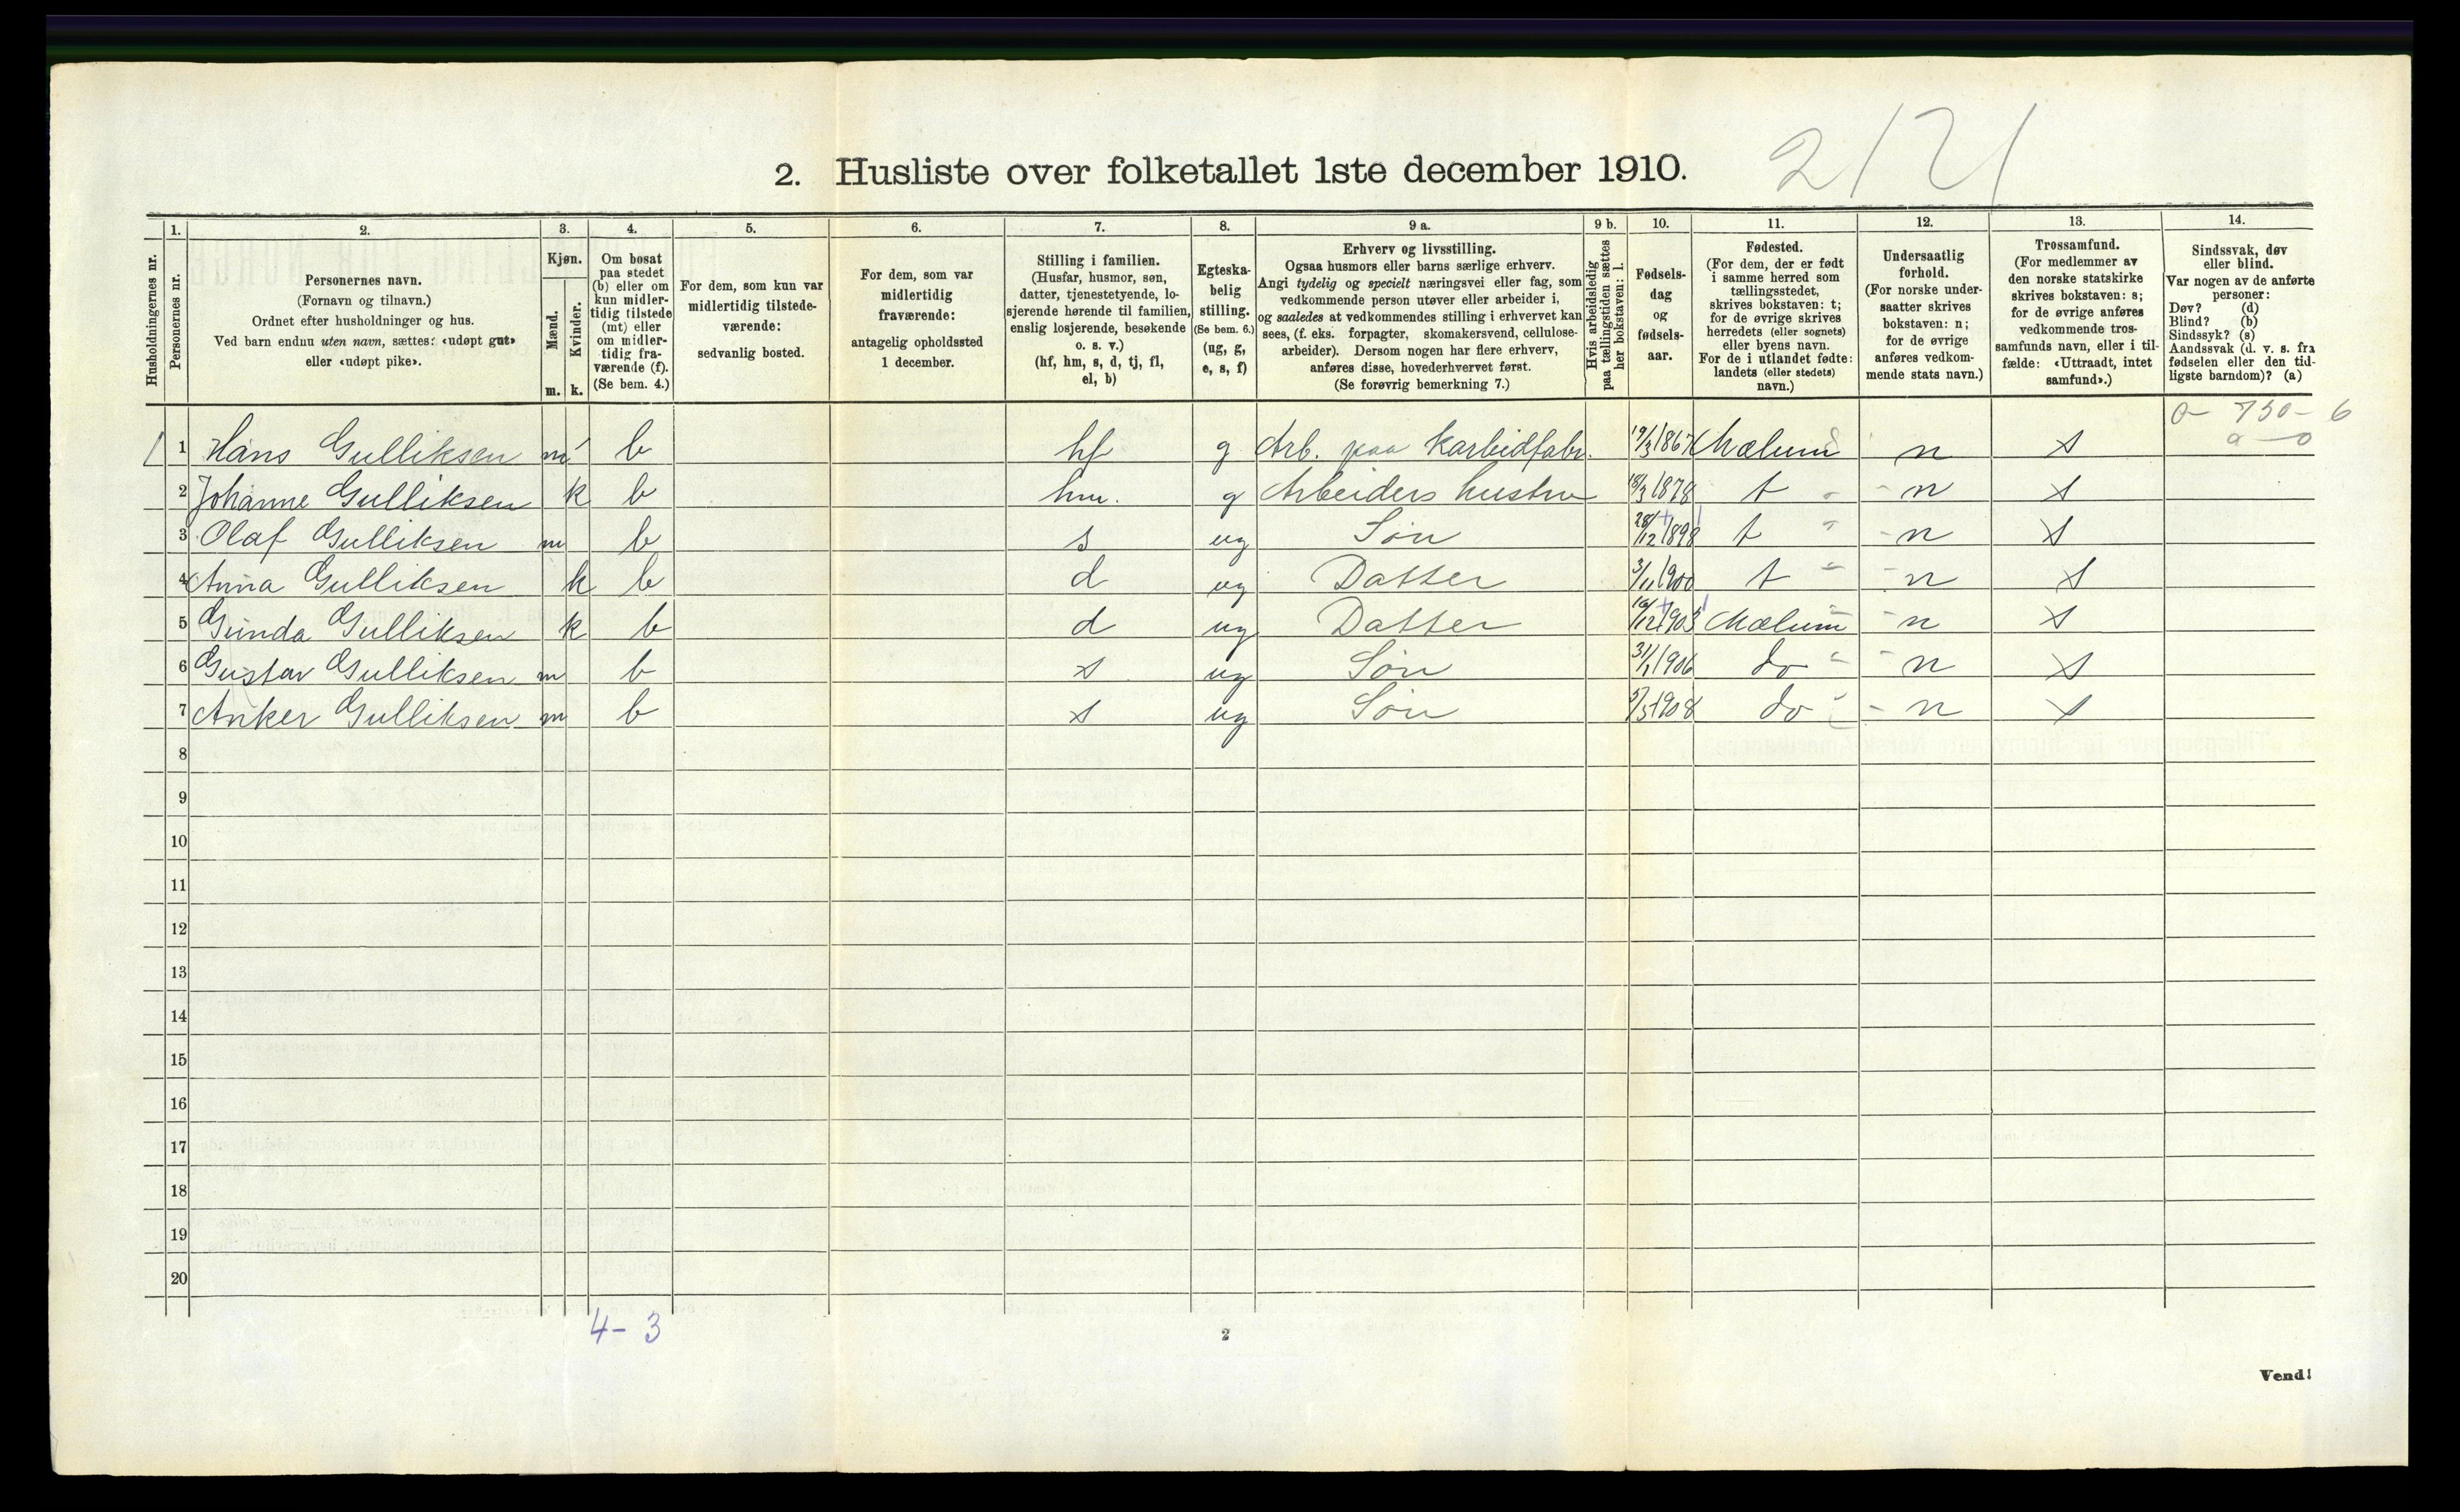 2. Husliste over folketallet 1ste december 1910.
1. 2. 3. 4. 5. 6. 7. 8. 9 a. 9 b. 10. 11. 12. 13. 14.
Husholdningernes nr.
Personernes nr.
Personernes navn.
(Fornavn og tilnavn.)
Ordnet efter husholdninger og hus.
Ved barn endnu uten navn, sættes: «udøpt gut»
eller «udøpt pike».
Kjøn.
Mænd.
Kvinder.
m. k.
Om bosat
paa stedet
(b) eller om
kun midler-
tidig tilstede
(mt) eller
om midler-
tidig fra-
værende (f).
(Se bem. 4.)
For dem, som kun var
midlertidig tilstede-
værende:
sedvanlig bosted.
For dem, som var
midlertidig
fraværende:
antagelig opholdssted
1 december.
Stilling i familien.
(Husfar, husmor, søn,
datter, tjenestetyende, lo-
sjerende hørende til familien,
enslig losjerende, besøkende
o. s. v.)
(hf, hm, s, d, tj, fl,
el, b)
Egteska-
belig
stilling.
(Se bem. 6.)
(ug, g,
e, s, f)
Erhverv og livsstilling.
Ogsaa husmors eller barns særlige erhverv.
Angi tydelig og specielt næringsvei eller fag, som
vedkommende person utøver eller arbeider i,
og saaledes at vedkommendes stilling i erhvervet kan
sees, (f. eks. forpagter, skomakersvend, cellulose-
arbeider). Dersom nogen har flere erhverv,
anføres disse, hovederhvervet først.
(Se forøvrig bemerkning 7.)
Hvis arbeidsledig
paa tællingstiden sættes
her bokstaven: l.
Fødsels-
dag
og
fødsels-
aar.
Fødested.
(For dem, der er født
i samme herred som
tællingsstedet,
skrives bokstaven: t;
for de øvrige skrives
herredets (eller sognets)
eller byens navn.
For de i utlandet fødte:
landets (eller stedets)
navn.)
Undersaatlig
forhold.
(For norske under-
saatter skrives
bokstaven: n;
for de øvrige
anføres vedkom-
mende stats navn.)
Trossamfund.
(For medlemmer av
den norske statskirke
skrives bokstaven: s;
for de øvrige anføres
vedkommende tros-
samfunds navn, eller i til-
fælde: «Uttraadt, intet
samfund».)
Sindssvak, døv
eller blind.
Var nogen av de anførte
personer:
Døv? (d)
Blind? (b)
Sindssyk? (s)
Aandssvak (d. v. s. fra
fødselen eller den tid-
ligste barndom)? (a)
0 - 730 - 6
0 - 0
1 1 Hans Gulliksen m b hf g Arb. paa Karbidfabr. 19/3 1867 Mælum n s
2 Johanne Gulliksen k b hm. g Arbeiders hustru 18/3 1878 t n s
3 Olaf Gulliksen m b s ug Søn 28/12 1898 t n s
4 Anna Gulliksen k b d ug Datter 3/11 1900 t n s
5 Gunda Gulliksen k b d ug Datter /12 1903 Mælum n s
6 Gustav Gulliksen m b s ug Søn 31/1 1906 do n s
7 Anker Gulliksen m b s ug Søn 5/5 1908 do n s
8
9
10
11
12
13
14
15
16
17
18
19
20
4 - 3
2
Vend!